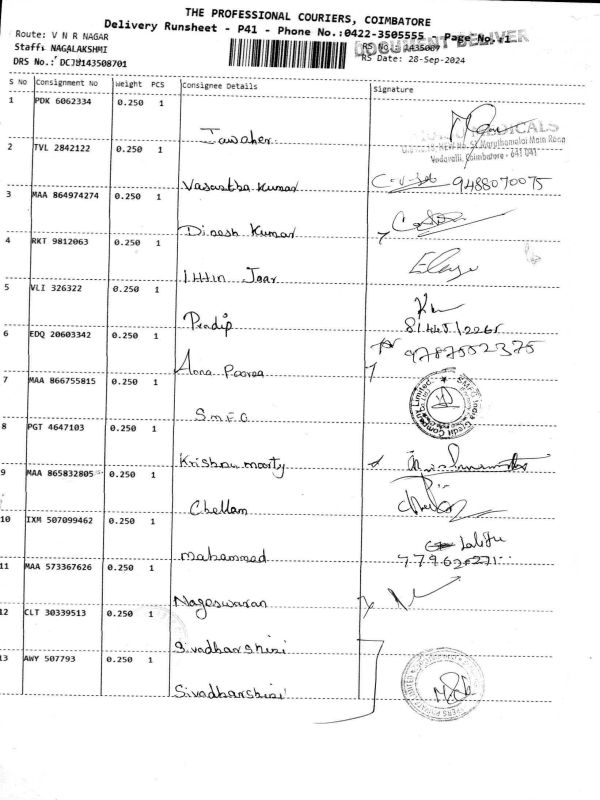 THE PROFESSIONAL COURIERS, COIMBATORE
Delivery Runsheet - P41 - Phone No.:0422-3505555 - Page No.:1
DOCUMENT DELIVER
Route: V N R NAGAR
Staff: NAGALAKSHMI
RS No.: 1435087
DRS No.: DCJU143508701
RS Date: 28-Sep-2024
S No Consignment No Weight PCS Consignee Details Signature
1 PDK 6062334 0.250 1
Jawaher
MEDICALS
Maruthamalai Main Road
Vadavalli, Coimbatore - 641 041
2 TVL 2842122 0.250 1
Vasantha Kumar 9488070075
3 MAA 864974274 0.250 1
Dinesh Kumar
4 RKT 9812063 0.250 1
5 VLI 326322 0.250 1
Pradip
6 EDQ 20603342 0.250 1
9787552375
Anna Poorna
7 MAA 866755815 0.250 1
SMFG India Credit Company Limited
S.M.F.G
8 PGT 4647103 0.250 1
Krishna moorty
9 MAA 865832805 0.250 1
Chellam
10 IXM 507099462 0.250 1
Lalitu
mahammed
11 MAA 573367626 0.250 1
Nageswaran
12 CLT 30339513 0.250 1
Sivadharshini
13 AWY 507793 0.250 1
Sivadharshini